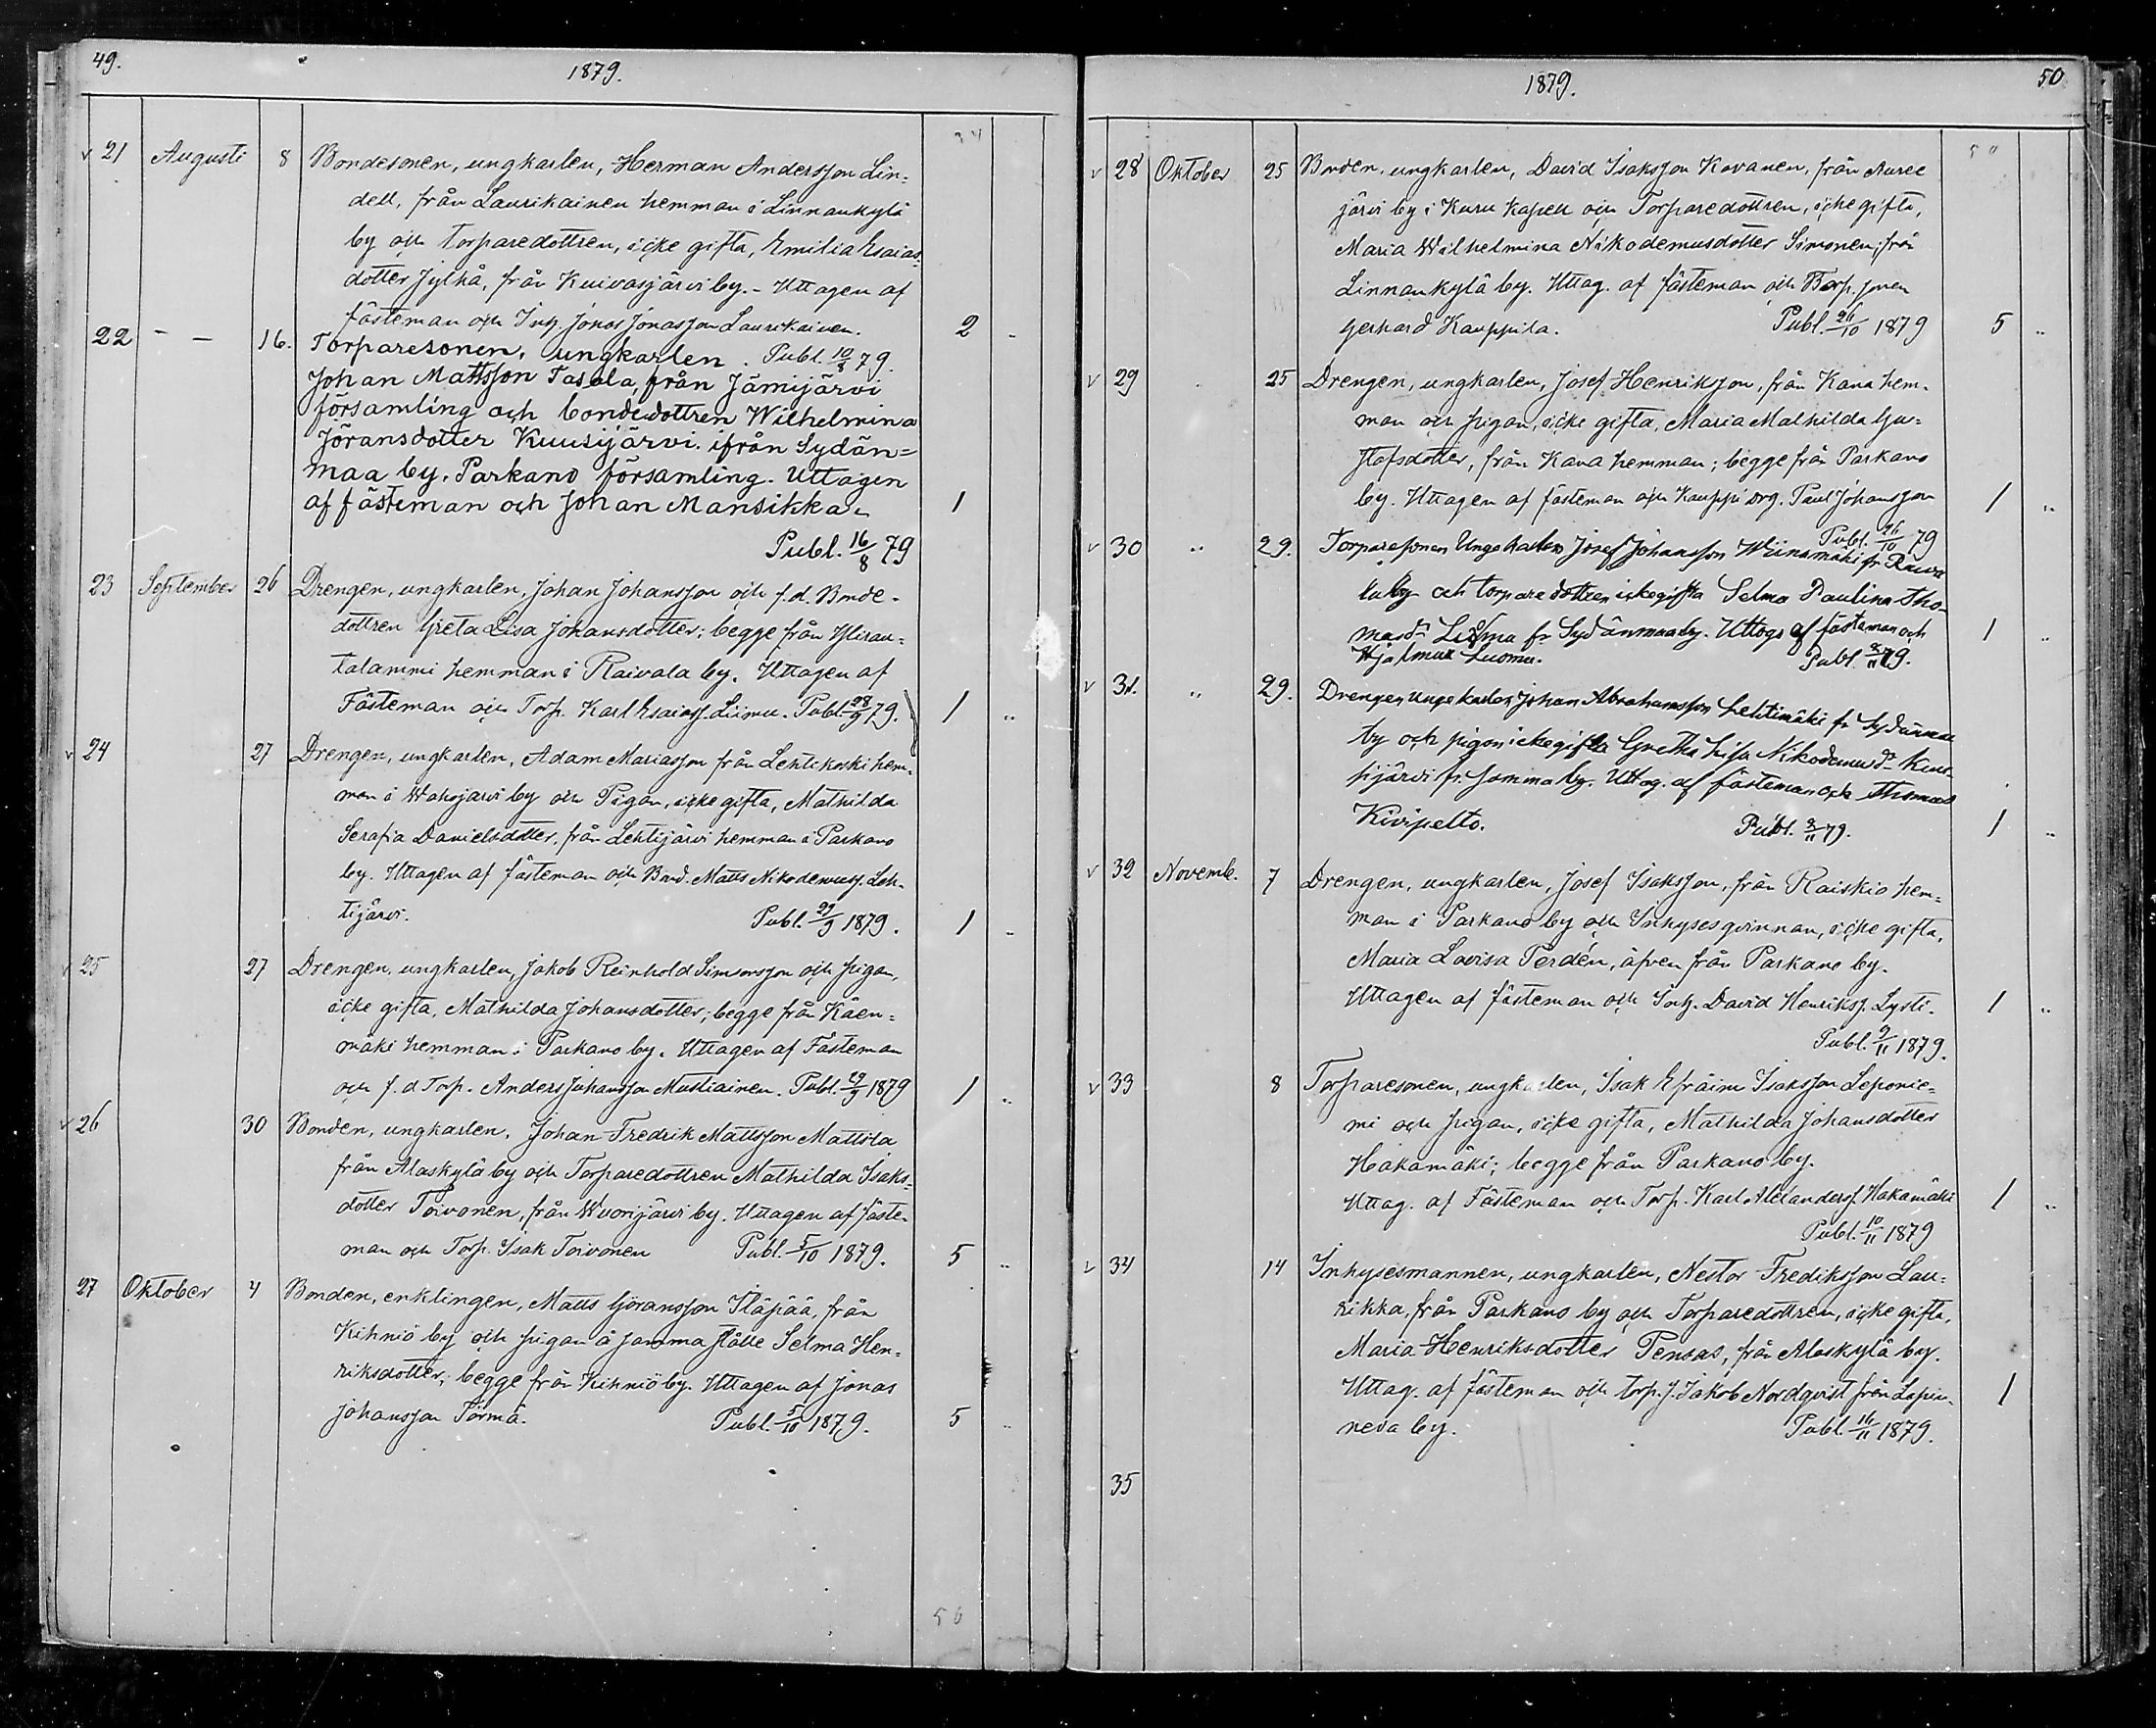 49.
1879.
34
21 Augusti 8 Bondesonen, ungkarlen, Herman Andersson Lin=
dell, från Laurikainen hemman i Linnankylä
by och torparedottren, icke gifta, Emilia Esaias=
dotter Jylhå, från Kuivasjärvi by. - Uttagen af
fästeman och Inh. Jonas Jonasson Laurikainen. 2 -
22 - - 16. Torparesonen, ungkarlen. Publ. 10/8 79.
Johan Mattsson Tasala, från Jämijärvi
församling och bondedottren Wilhelmina
Jöransdotter Kuusijärvi. ifrån Sydän=
maa by, Parkano församling. Uttagen
af fästeman och Johan Mansikka 1
Publ. 16/8 79
23 September 26 Drengen, ungkarlen, Johan Johansson och f.d. Bonde-
dottren Greta Lisa Johansdotter; begge från Yliran=
talammi hemman i Raivala by. Uttagen af
Fästeman och Torp. Karl Esaiass. Liimu. Publ. 28/9 79. 1 ..
v 24 27 Drengen, ungkarlen, Adam Mariasson från Lehtikoski hem=
man i Wahojärvi by och Pigan, icke gifta, Mathilda
Serafia Danielsdotter, från Lehtijärvi hemman i Parkano
by. Uttagen af fästeman och Bond. Matts Nikodemuss. Leh-
tijärvi. Publ. 29/9 1879. 1 ..
v 25 27 Drengen, ungkarlen, Jakob Reinhold Simonsson och pigan,
icke gifta, Mathilda Johansdotter; begge från Käen=
mäki hemman i Parkano by. Uttagen af Fästeman
och f. d Torp. Anders Johansson Mustiainen. Publ. 29/9 1879 1 ..
v 26 30 Bonden, ungkarlen, Johan Fredrik Mattsson Mattila
från Alaskylä by och Torparedottren Mathilda Isaks=
dotter Toivonen, från Wuorijärvi by. Uttagen af fäste-
man och Torp. Isak Toivonen Publ. 5/10 1879. 5 ..
27 Oktober 4 Bonden, enklingen, Matts Göransson Yläpää, från
Kihniö by och pigan å samma ställe Selma Hen=
riksdotter; begge från Kihniö by. Uttagen af Jonas
Johansson Törmä. Publ. 5/10 1879. 5 ..
50
1879.
50
50
v 28 Oktober 25 Bonden, ungkarlen, David Isaksson Kovanen, från Auree
järvi by i Kuru Kapell och Torparedottren, icke gifta,
Maria Wilhelmina Nikodemusdotter Simonen, från
Linnankylä by. Uttag. af fästeman och Torp. sonen
Gerhard Kauppila. Publ. 26/10 1879 5 ..
v 29 25 Drengen, ungkarlen, Josef Henriksson, från Kana hem-
man och pigan, icke gifta, Maria Mathilda Gu=
stafsdotter, från Kana hemman; begge från Parkano
by. Uttagen af fästeman och Kauppi drg. Paul Johansson 1 ..
Publ. 26/10 79
v 30 .. 29. Torparesonen Ungekarlen Josef Johansson Wiinamäki fr Raiva
la by och torparedottren ickegifta Selma Paulina Tho-
masdr Liima fr Sydänmaa by. Uttags af fästeman och 1 ..
Hjalmar Luoma. Publ. 2/11 79.
v 31. .. 29. Drengen Ungekarlen Johan Abrahamsson Lehtimäki fr Sydänmaa
by och pigan ickegifta Gretha Lisa Nikodemusdr Kuu-
sijärvi fr. samma by. Uttag. af fästeman och Thomas
Kivipelto. Publ. 2/11 79. 1 ..
v 32 Novemb. 7 Drengen, ungkarlen, Josef Isaksson, från Raiskio hem=
man i Parkano by och Inhysesqvinnan, icke gifta,
Maria Lovisa Perdén, äfven från Parkano by.
Uttagen af fästeman och Inh. David Henrikss. Lysti. 1 ..
Publ. 9/11 1879.
v 33 8 Torparesonen, ungkarlen, Isak Efraim Isaksson Leponie=
mi och pigan, icke gifta, Mathilda Johansdotter
Hakamäki; begge från Parkano by.
Uttag. af Fästeman och Torp. Karl Alexanders. Hakamäki 1 ..
Publ. 10/11 1879
v 34 14 Inhysesmannen, ungkarlen, Nestor Frediksson Lau=
rikka, från Parkano by och Torparedottren, icke gifta,
Maria Henriksdotter Pensas, från Alaskylä by.
Uttag. af fästeman och torp. s. Jakob Nordqvist från Lapin- 1
neva by. Publ. 16/11 1879.
35